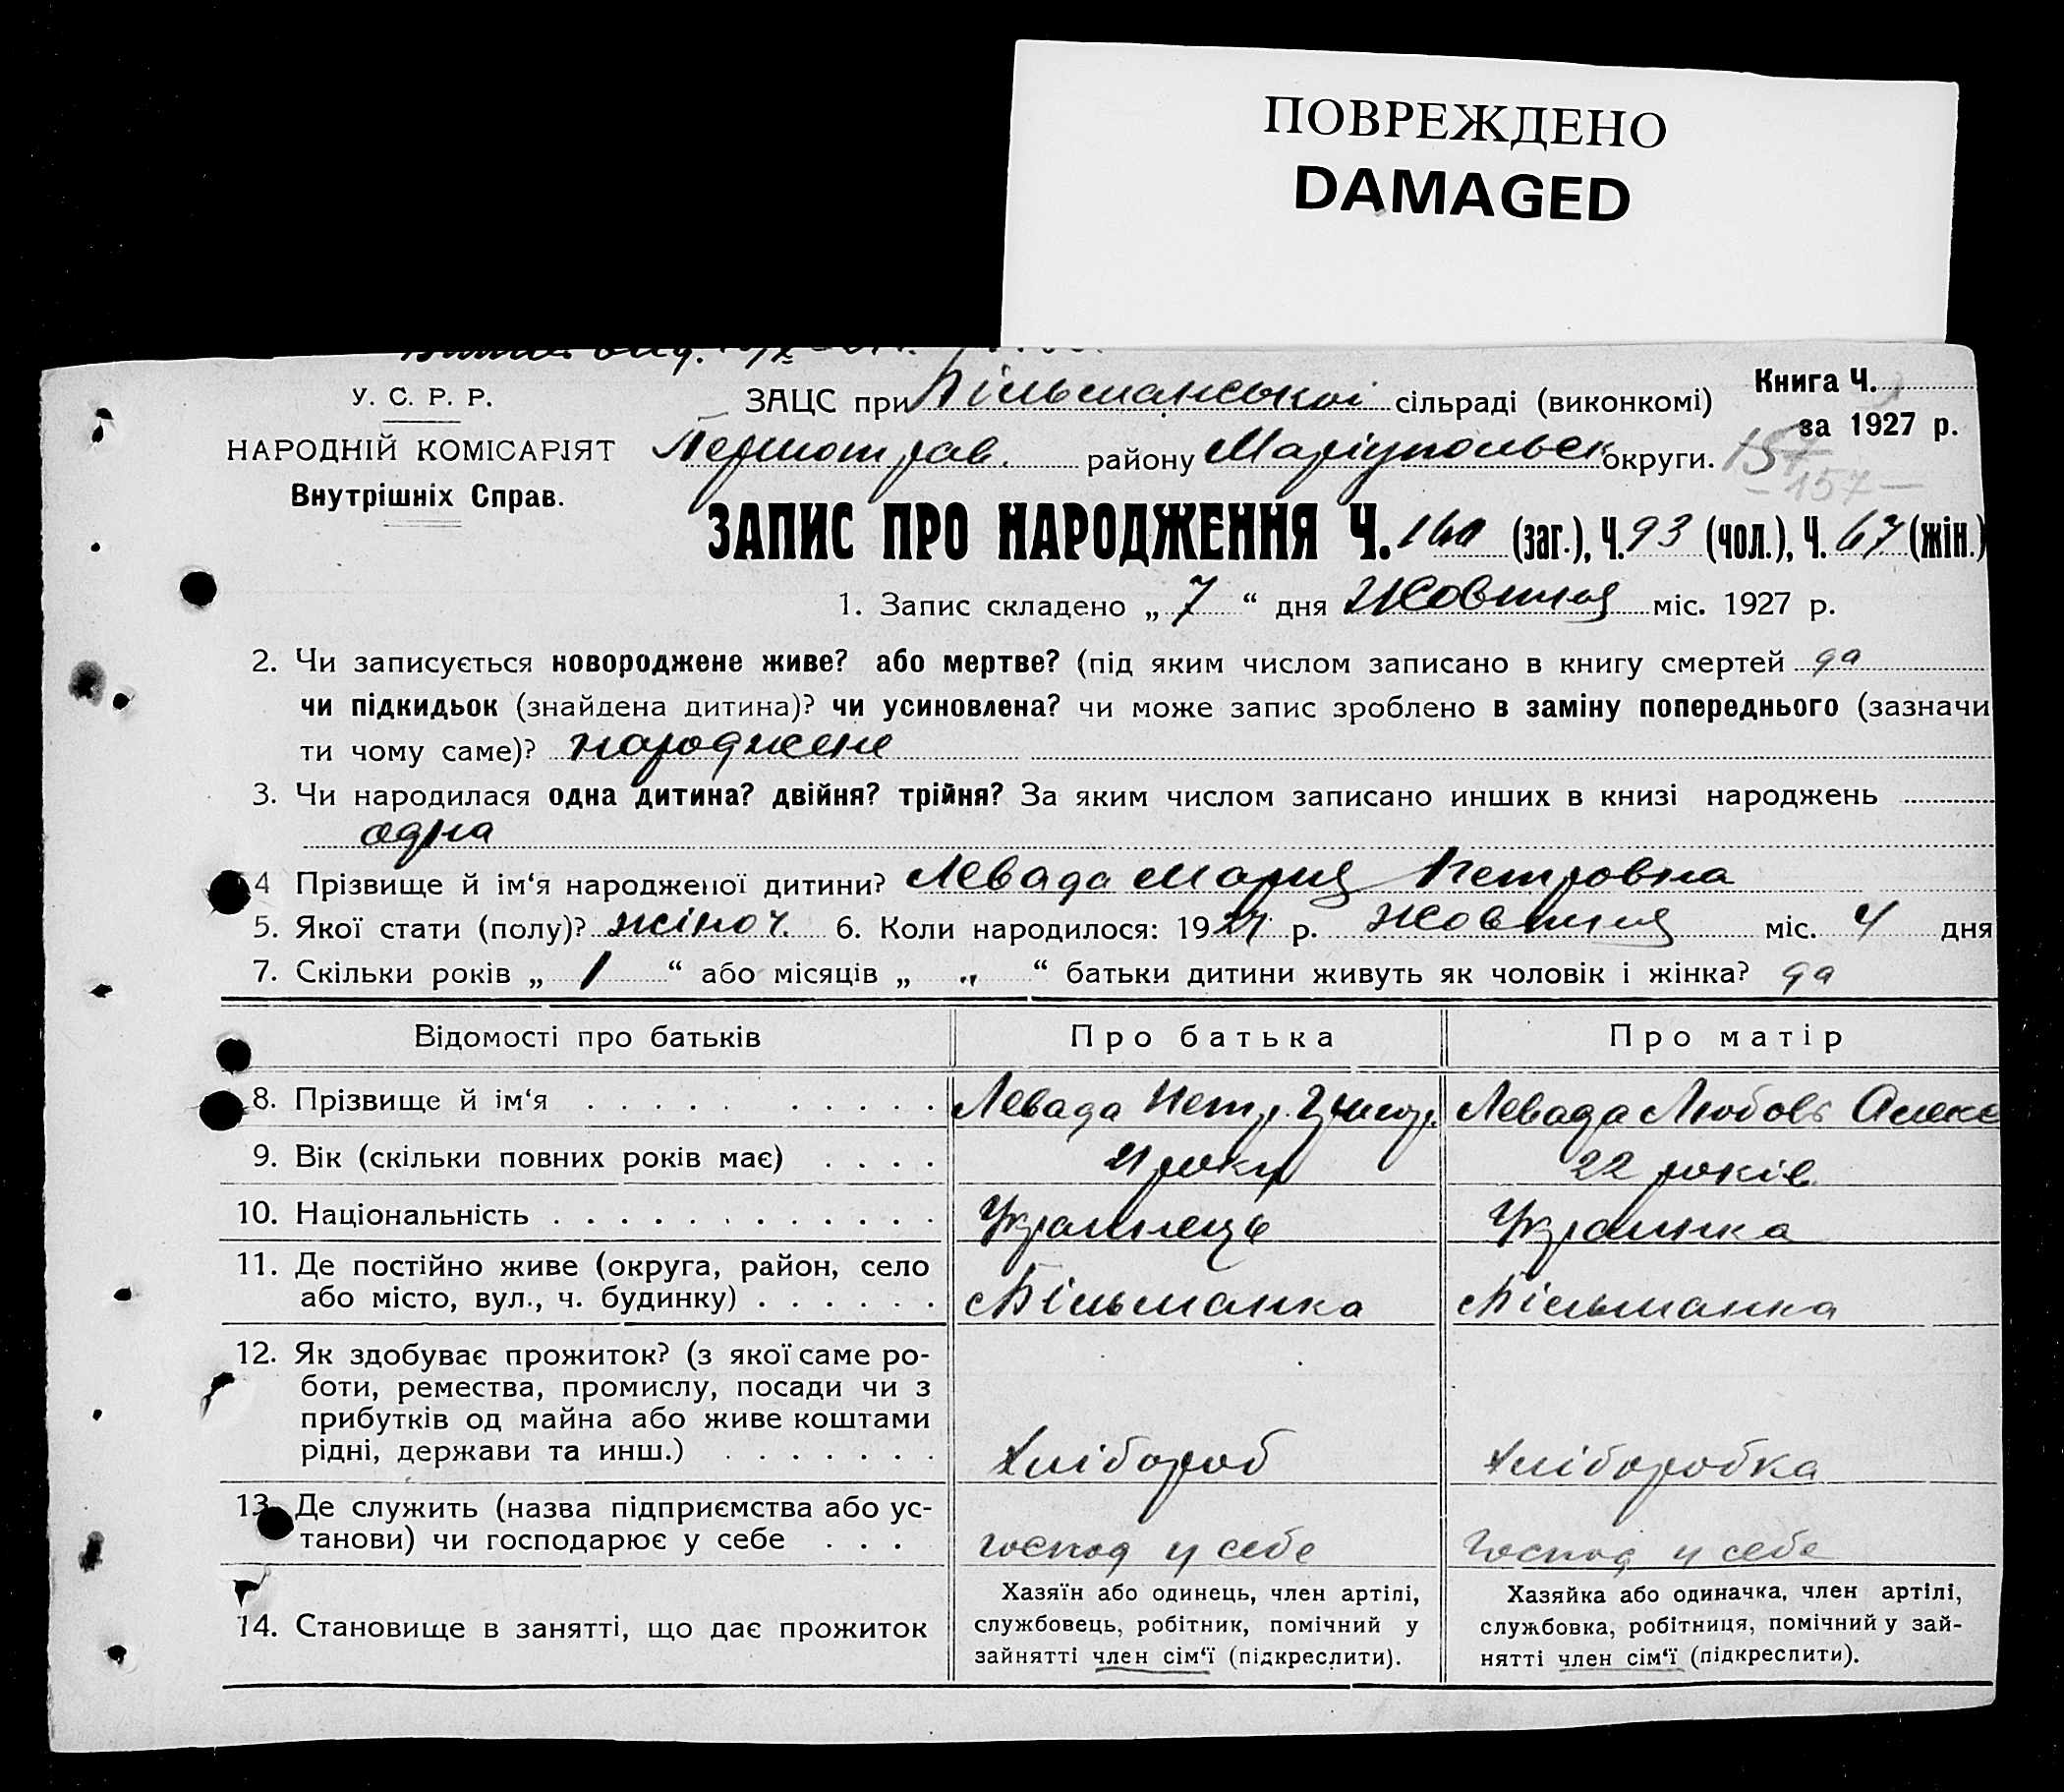 ПОВРЕЖДЕНО
DAMAGED
У. С. Р. Р.
НАРОДНІЙ КОМІСАРІЯТ
Внутрішніх Справ.
ЗАЦС при Більманської сільраді (виконкомі)
Книга Ч.
за 1927 р.
Першотрав. району Маріупольськ округи.
157
- 157 -
ЗАПИС ПРО НАРОДЖЕННЯ Ч. 160 (заг.), Ч. 93 (чол.), Ч. 67 (жін.)
1. Запис складено „ 7 “ дня Жовтня міс. 1927 р.
2. Чи записується новороджене живе? або мертве? (під яким числом записано в книгу смертей да
чи підкидьок (знайдена дитина)? чи усиновлена? чи може запис зроблено в заміну попереднього (зазначи
ти чому саме)? народжене
3. Чи народилася одна дитина? двійня? трійня? За яким числом записано инших в книзі народжень
одна
4 Прізвище й ім‘я народженої дитини? Левада Мария Петровна
5. Якої стати (полу)? жіноч. 6. Коли народилося: 1927 р. жовтня міс. 4 дня
7. Скільки років „ 1 “ або місяців „ „ “ батьки дитини живуть як чоловік і жінка? да
Відомості про батьків Про батька Про матір
8. Прізвище й ім‘я Левада Петр. Григор. Левада Любовь Алекс
9. Вік (скільки повних років має) 21 року 22 років
10. Національність Українець Українка
11. Де постійно живе (округа, район, село
або місто, вул., ч. будинку) Більманка Більманка
12. Як здобуває прожиток? (з якої саме ро-
боти, ремества, промислу, посади чи з
прибутків од майна або живе коштами
рідні, держави та инш.) Хлібороб Хліборобка
13. Де служить (назва підприємства або ус-
танови) чи господарює у себе господ у себе господ у себе
14. Становище в занятті, що дає прожиток
Хазяїн або одинець, член артілі,
службовець, робітник, помічний у
зайнятті член сім‘ї (підкреслити).
Хазяйка або одиначка, член артілі,
службовка, робітниця, помічний у зай-
нятті член сім‘ї (підкреслити).